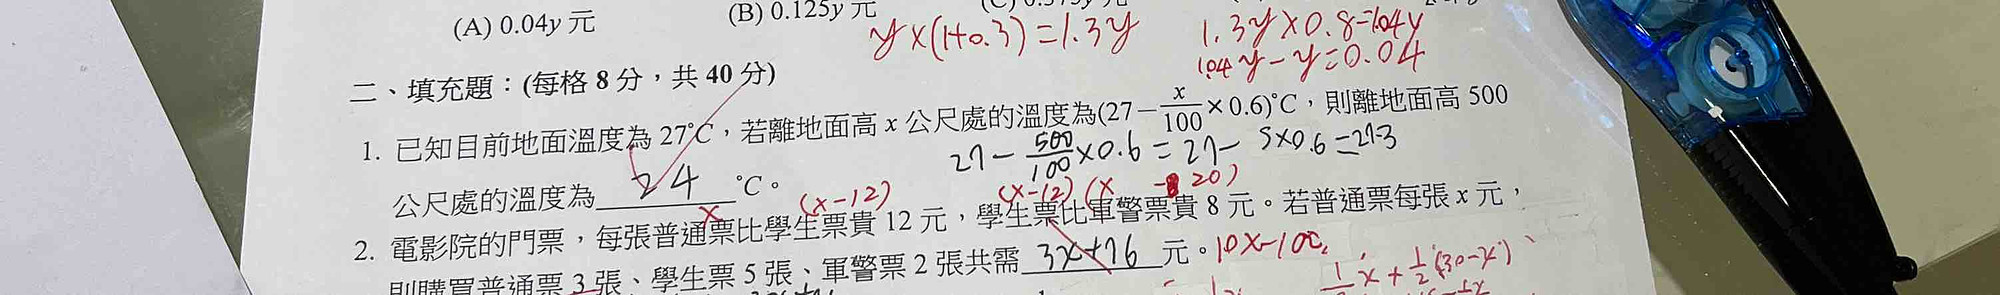 (A) 0.04y 元
(B) 0.125y 元
y×(1+0.3)=1.3y
1.3y×0.8=1.04y
1.04y-y=0.04
二、填充題：(每格 8 分，共 40 分)
1. 已知目前地面溫度為 27°C，若離地面高 x 公尺處的溫度為(27－x/100×0.6)°C，則離地面高 500
27-500/100×0.6=27-5×0.6=27-3
公尺處的溫度為 24 °C。
x (x-12) (x-12) (x-20)
2. 電影院的門票，每張普通票比學生票貴 12 元，學生票比軍警票貴 8 元。若普通票每張 x 元，
則購買普通票 3 張、學生票 5 張、軍警票 2 張共需 3x+76 元。10x-100